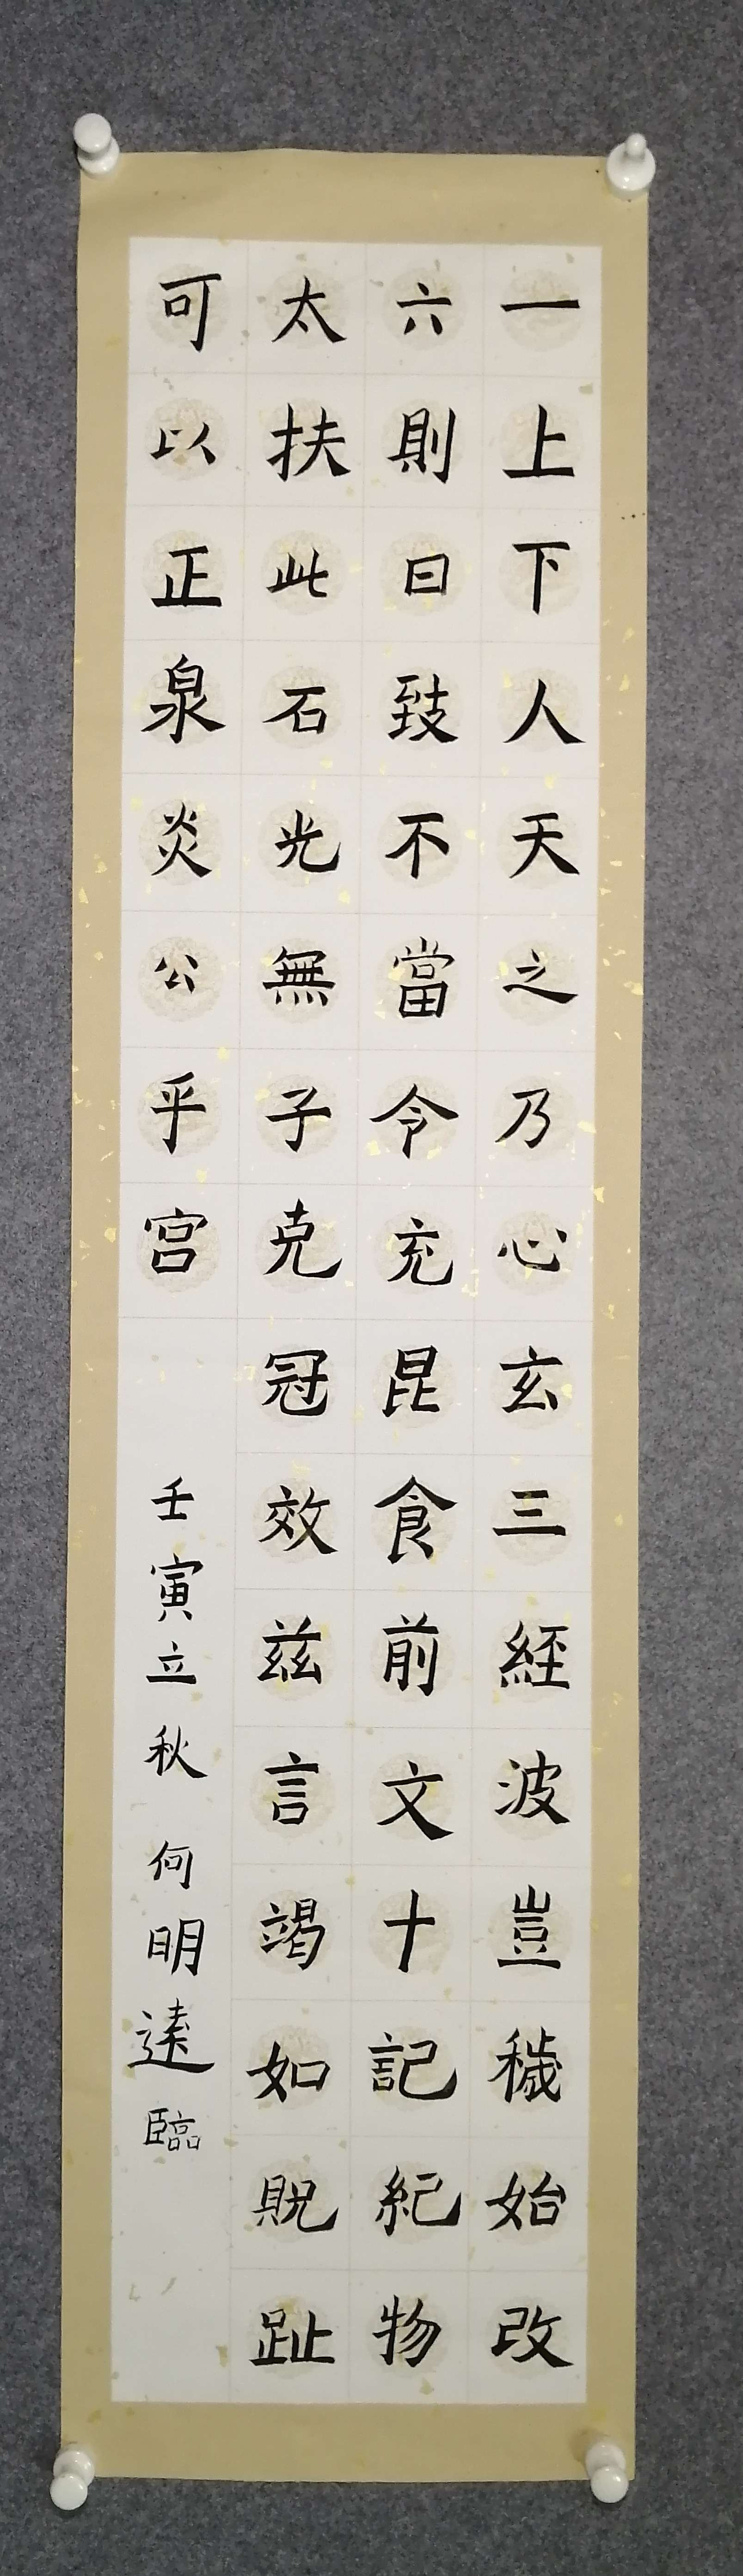 一上下人天之乃心玄三經波豈穢始改
六則曰致不當令充昆食前文十記紀物
太扶此石光無子克冠效兹言竭如貺趾
可以正泉炎公乎宫
壬寅立秋 何明遠臨